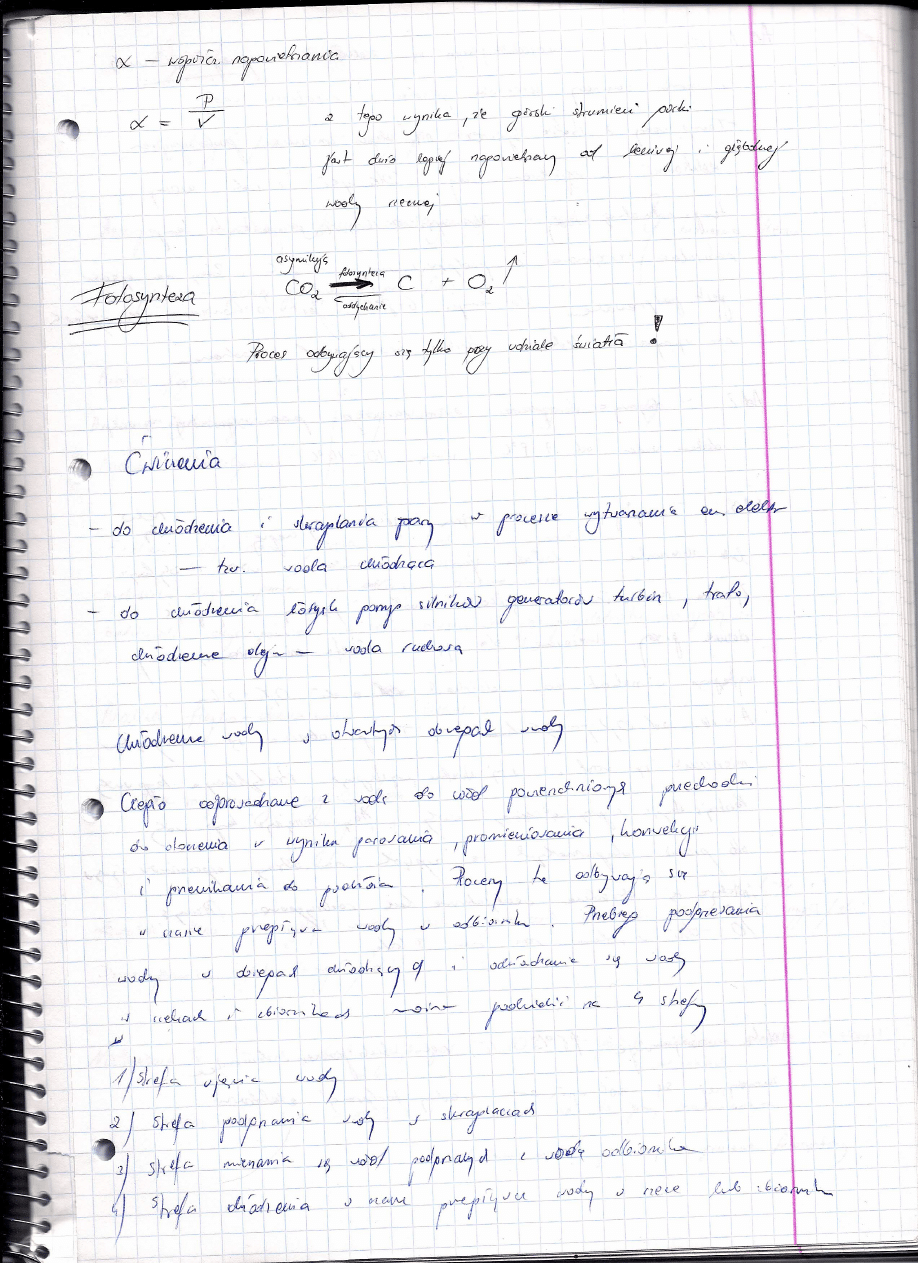 α – współcz. napowietrzania
α = P/V
z tego wynika, że górski strumień płytki
jest dużo lepiej napowietrzany od leniwej i głębokiej
wody rzecznej
asymilują
Fotosynteza
CO2 fotosynteza oddychanie C + O2 ↑
Proces odbywający się tylko przy udziale światła !
Ćwiczenia
– do chłodzenia i skraplania pary w procesie wytwarzania en. elektr
– tzw. woda chłodząca
– do chłodzenia łożysk pomp silników generatorów turbin, trafo,
chłodzenie oleju – woda ruchowa
Chłodzenie wody w otwartych obiegach wody
Ciepło odprowadzane z wodą do wód powierzchniowych przechodzi
do otoczenia w wyniku parowania, promieniowania, konwekcji
i przenikania do podłoża. Procesy te odbywają się
w czasie przepływu wody w odbiorniku. Przebieg podgrzewania
wody w obiegach chłodzących i ochładzanie się wody
w rzekach i zbiornikach można podzielić na 4 strefy
1) Strefa ujęcia wody
2) Strefa podgrzania wody w skraplaczach
3) Strefa mieszania się wód podgrzanych z wodą odbiornika
4) Strefa chłodzenia w czasie przepływu wody w rzece lub zbiorniku